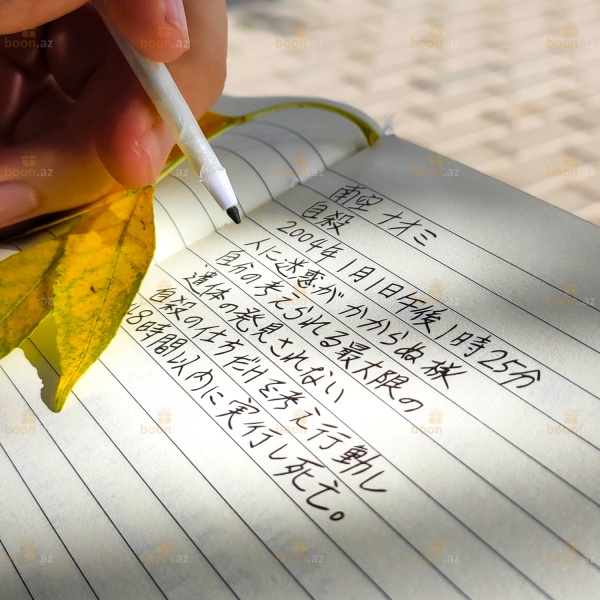 南空ナオミ
自殺
2004年1月1日午後1時25分
人に迷惑がかからぬ様
自分の考えられる最大限の
遺体の発見されない
自殺の仕方だけを考え行動し
48時間以内に実行し死亡。
boon.az